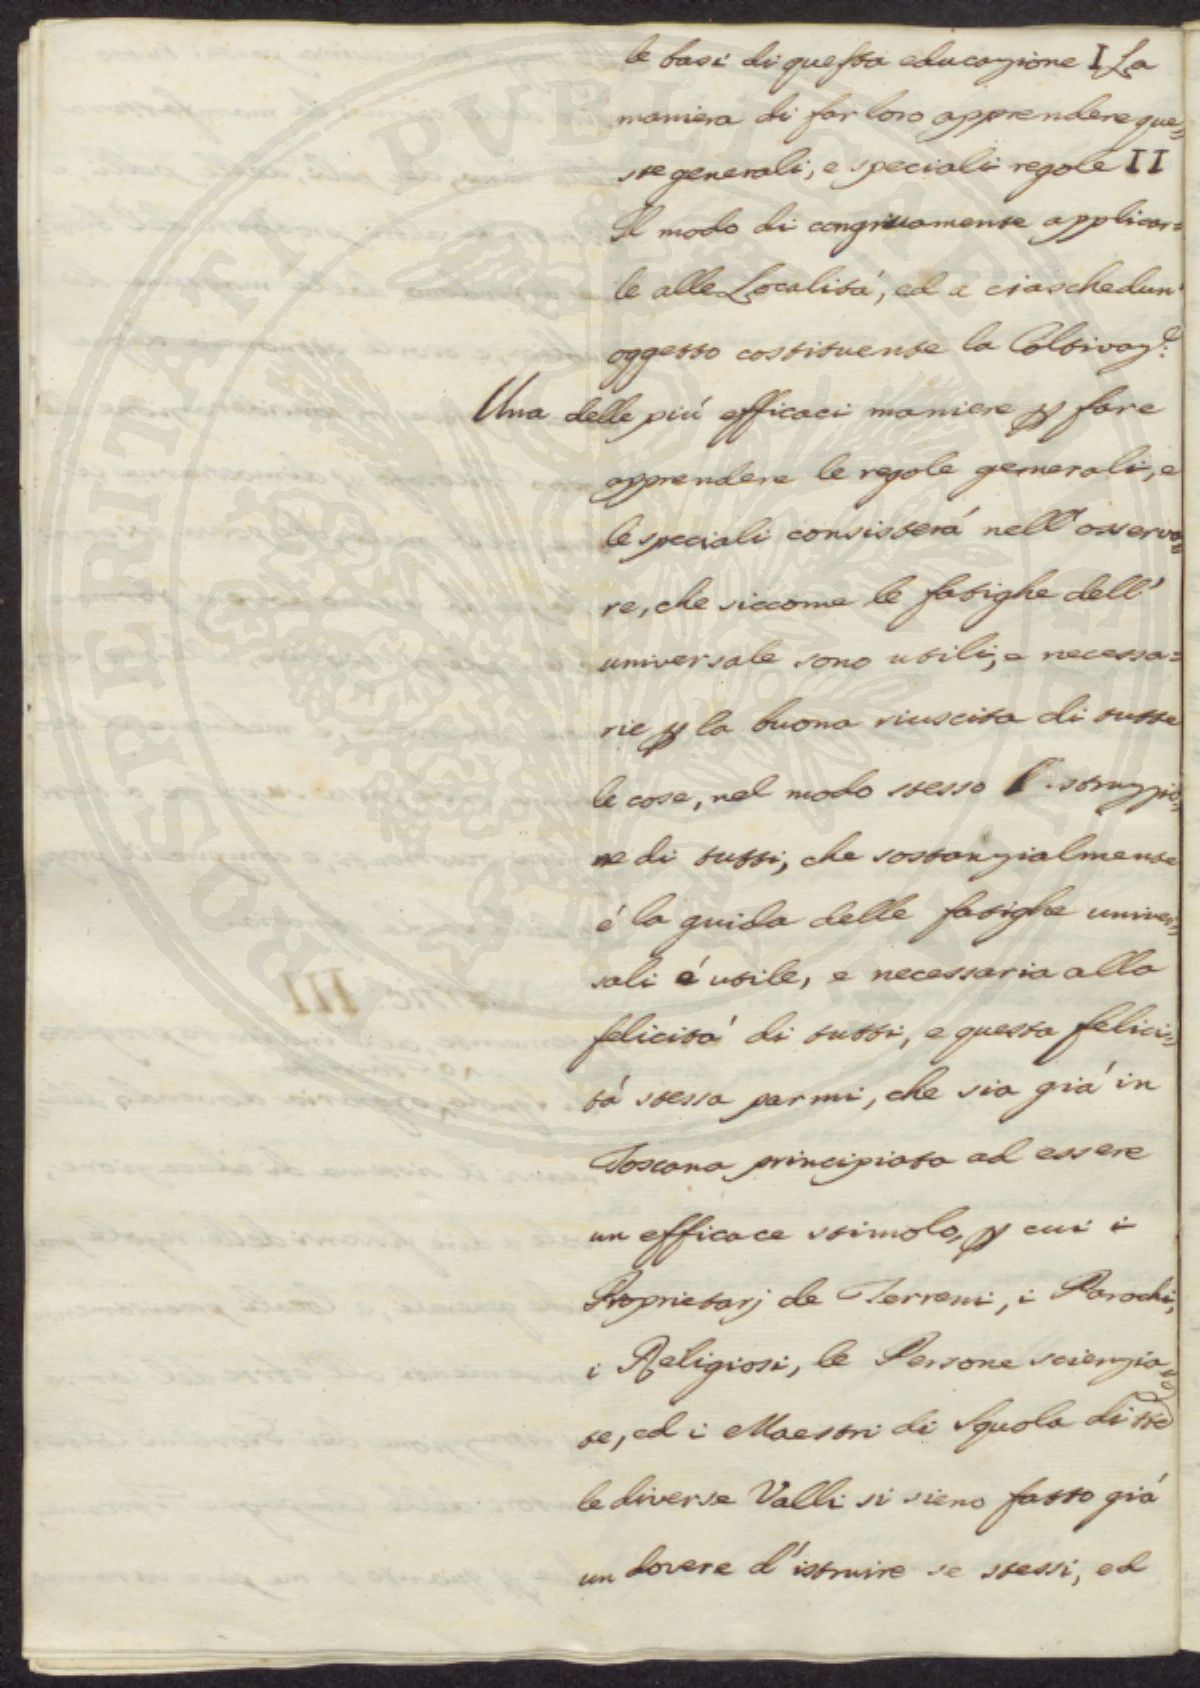 le basi di questa educazione I La
maniera di far loro apprendere que=
ste generali, e speciali regole II
Il modo di congruamente applicar=
le alle Localitá, ed a ciaschedun'
oggetto costituente la Coltivaz.e:
Una delle piú efficaci maniere p fare
apprendere le regole generali, e
le speciali consisterá nell' osserva=
re, che siccome le fatighe dell'
universale sono utili, e necessa=
rie p la buona riuscita di tutte
le cose, nel modo stesso l'istruzzio=
ne di tutti, che sostanzialmente
é la guida delle fatighe univer=
sali é utile, e necessaria alla
felicitá di tutti, e questa felici=
tá stessa parmi, che sia giá in
Toscana principiata ad essere
un efficace stimolo, p cui i
Proprietarj de Terreni, i Parochi,
i Religiosi, le Persone scienzia=
te, ed i Maestri di Squola di tte
le diverse Valli si sieno fatto giá
un dovere d'istruire se stessi, ed
PROSPERITATI PVBLICAE